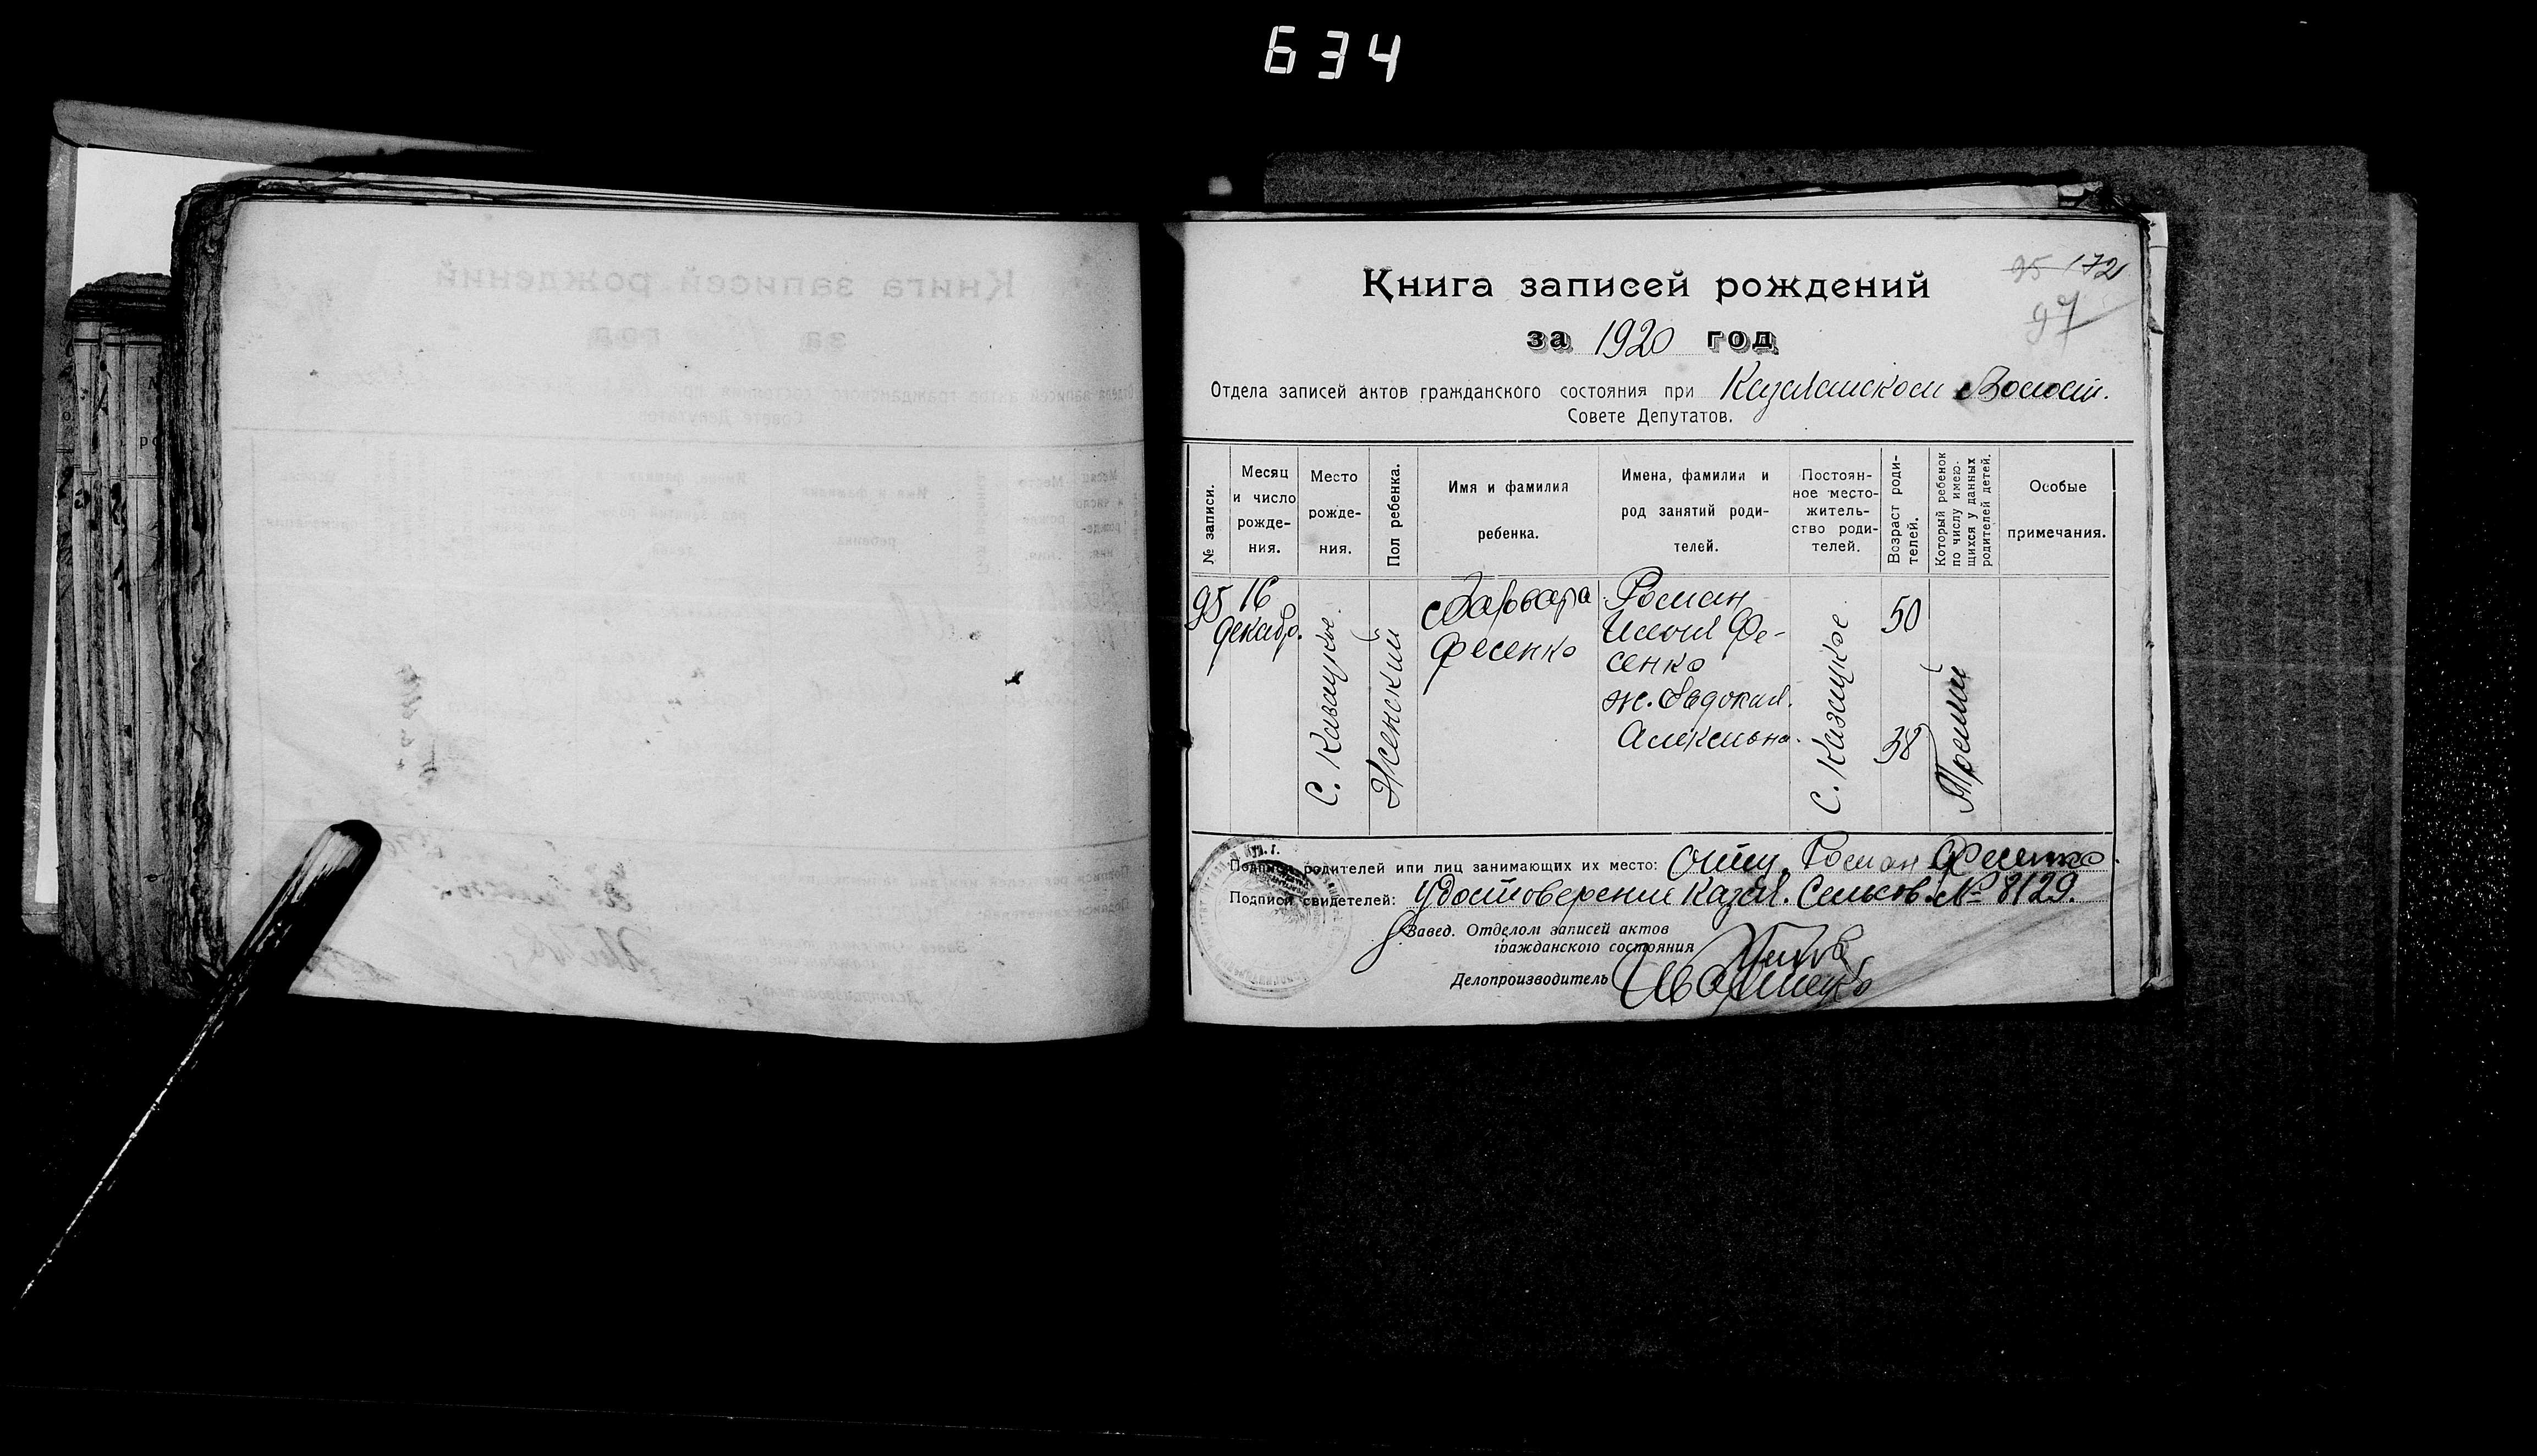 634
95 172
97
Книга записей рождений
за 1920 год
Отдела записей актов гражданского состояния при Волост.
Совете Депутатов.
№ записи.
Месяц и число рожде-ния.
Место рожде-ния.
Пол ребенка.
Имя и фамилия ребенка.
Имена, фамилии и род занятий роди-телей.
Постоян-ное место-житель-ство роди-телей.
Возраст роди-телей.
Который ребенок по числу имею-щихся у данных родителей детей.
Особые примечания.
95
16
декабр.
С.
Женский
Варвара
Фесенко
Роман
Фе-
сенко
ж. Евдокия
С.
50
38
Третий
Подписи родителей или лиц занимающих их место: Роман Фесенко
Подписи свидетелей: Удостоверение Сельсов. № 8129.
Завед. Отделом записей актов
гражданского состояния
Делопроизводитель